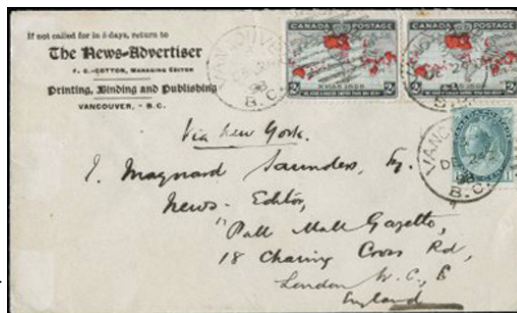 If not called for in 5 days, return to
The News-Advertiser
F. C.-COTTON, MANAGING EDITOR
Printing, Binding and Publishing
VANCOUVER, - B. C.
CANADA POSTAGE
CANADA POSTAGE
XMAS 1898
VANCOUVER
DE 29
98
B.C.
Via New York.
J. Maynard Saunders, Esq.
News-Editor,
"Pall Mall Gazette,
18 Charing Cross Rd,
London W.C.
England